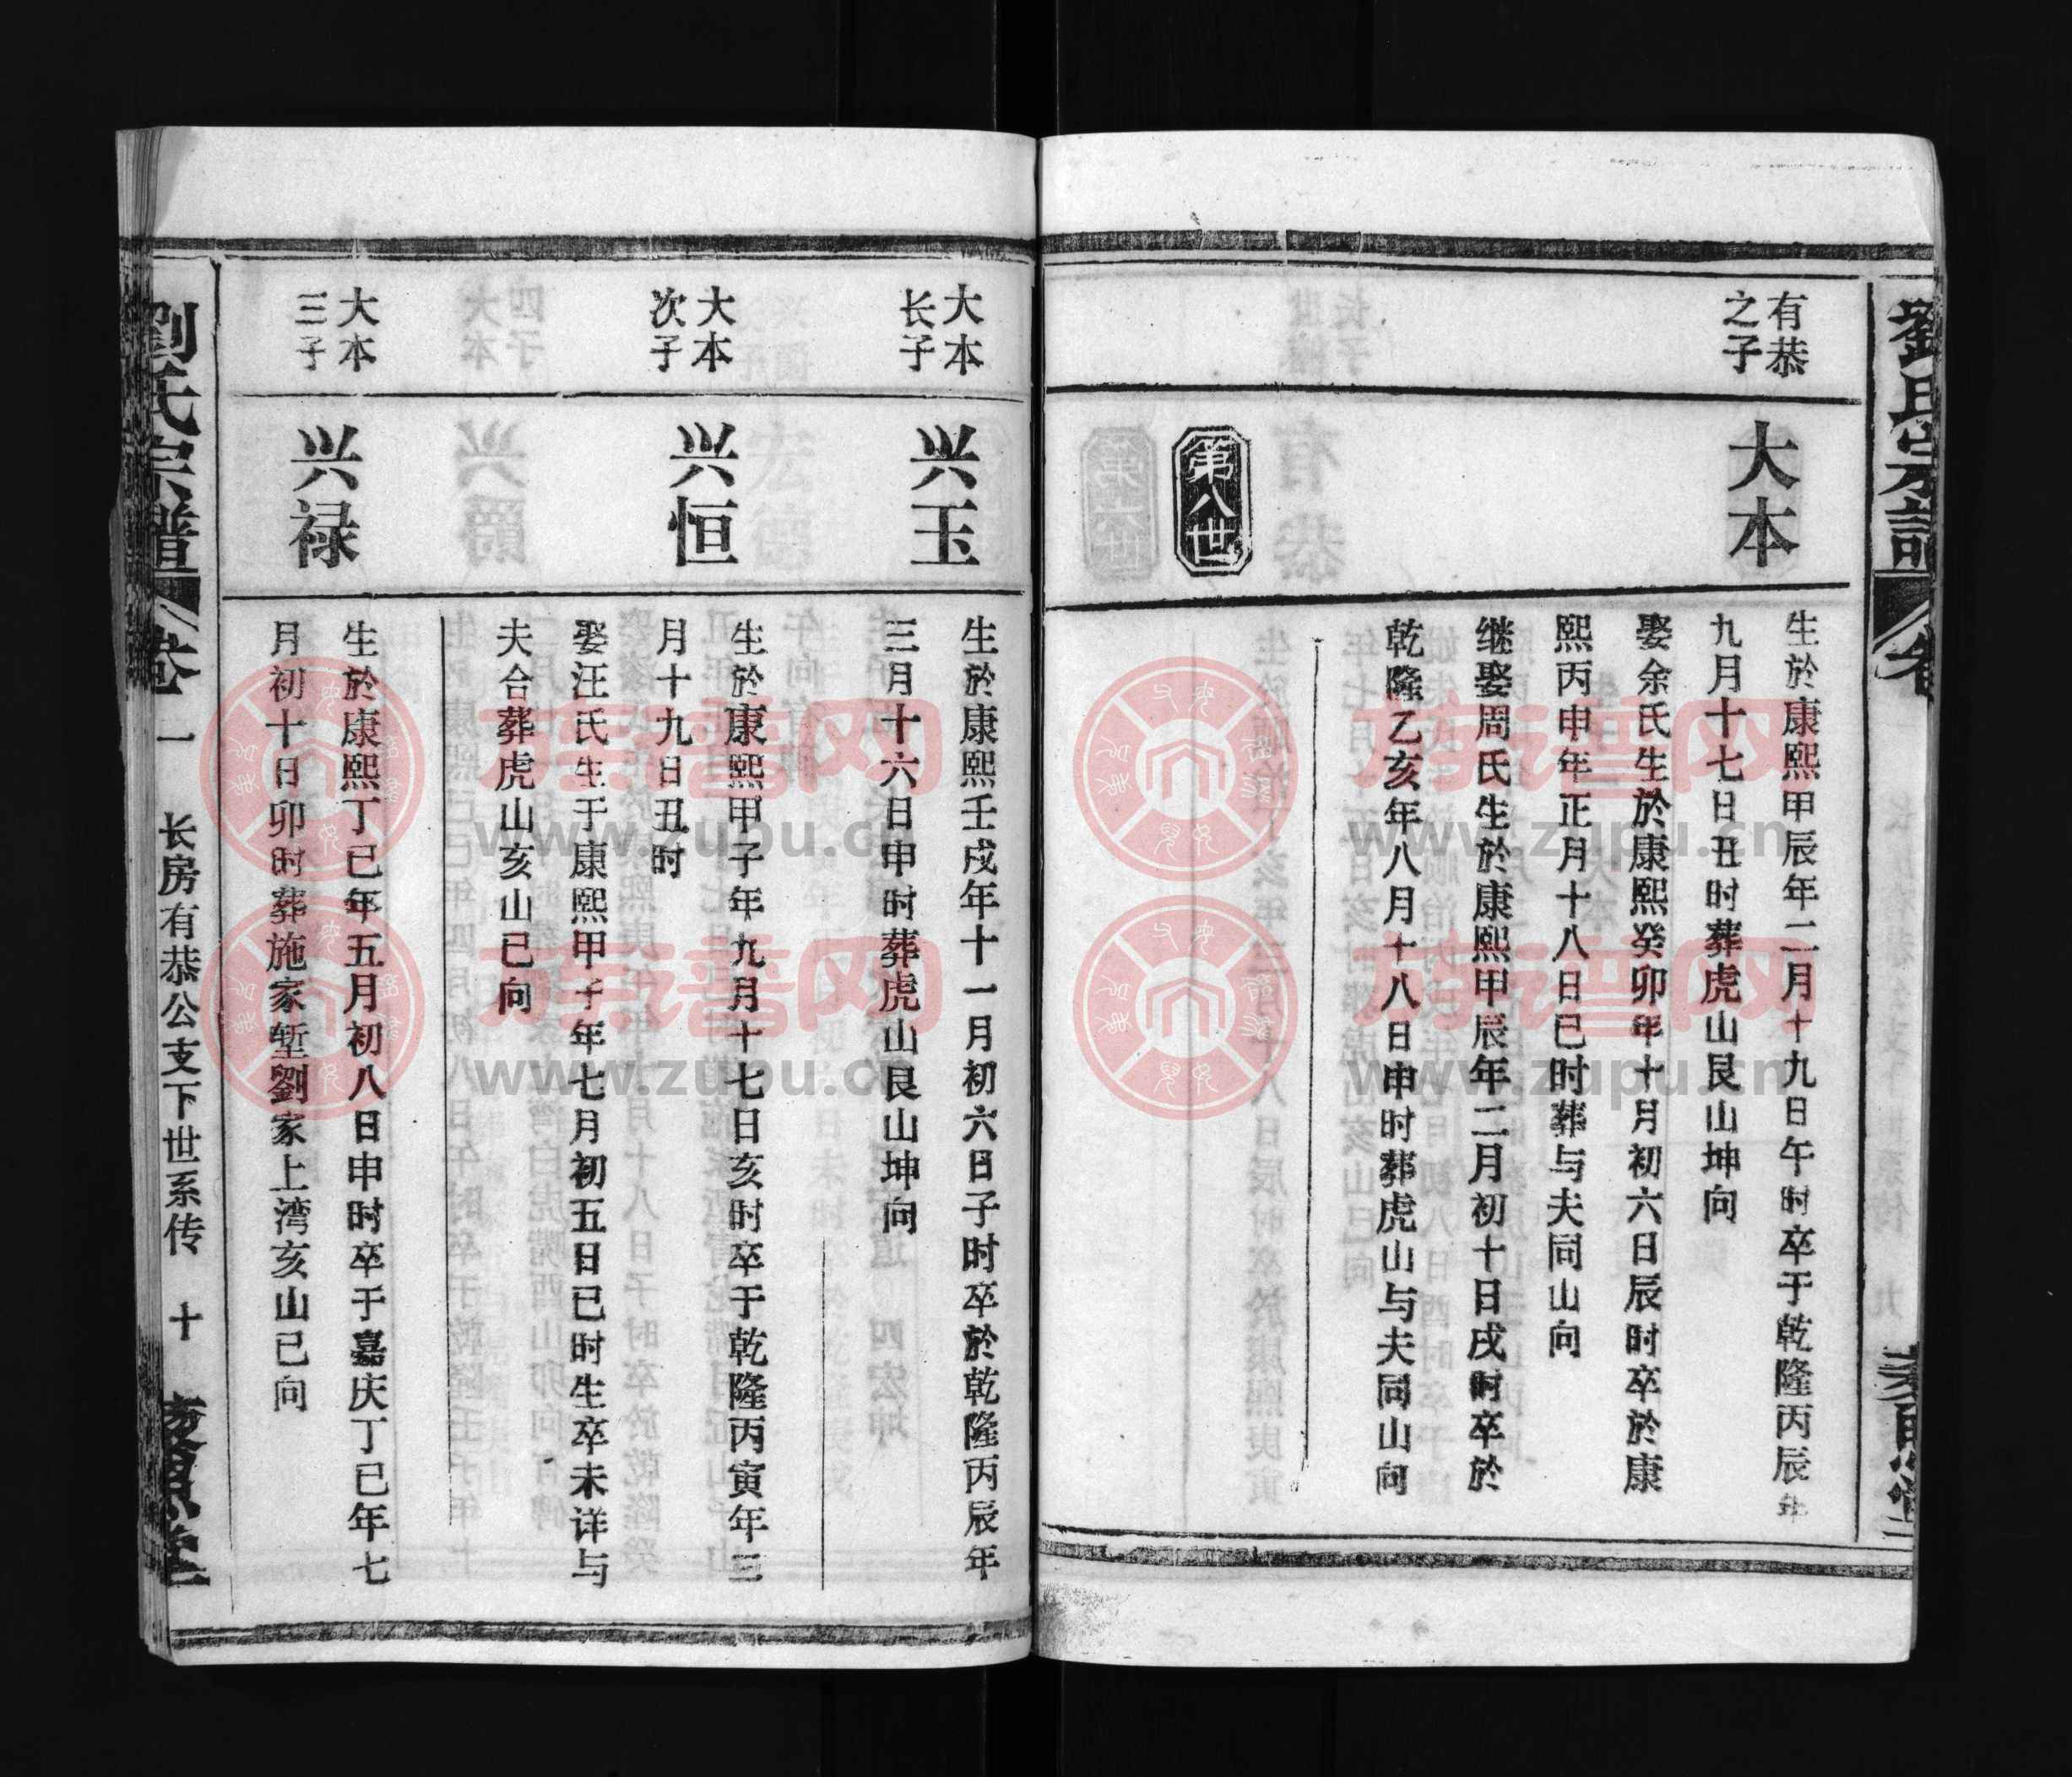 有恭
之子
大本
生於康熙甲辰年二月十九日午时卒于乾隆丙辰年
九月十七日丑时葬虎山艮山坤向
娶余氏生於康熙癸卯年十月初六日辰时卒於康
熙丙申年正月十八日巳时葬与夫同山向
继娶周氏生於康熙甲辰年二月初十日戌时卒於
乾隆乙亥年八月十八日申时葬虎山与夫同山向
第八世
大本
长子
兴玉
生於康熙壬戌年十一月初六日子时卒於乾隆丙辰年
三月十六日申时葬虎山艮山坤向
大本
次子
兴恒
生於康熙甲子年九月十七日亥时卒于乾隆丙寅年三
月十九日丑时
娶汪氏生于康熙甲子年七月初五日巳时生卒未详与
夫合葬虎山亥山巳向
大本
三子
兴禄
生於康熙丁巳年五月初八日申时卒于嘉庆丁巳年七
月初十日卯时葬施家堑劉家上湾亥山巳向
劉氏宗譜
卷一
长房有恭公支下世系传
十
族谱网
www.zupu.cn
族谱网
www.zupu.cn
族谱网
www.zupu.cn
族谱网
www.zupu.cn